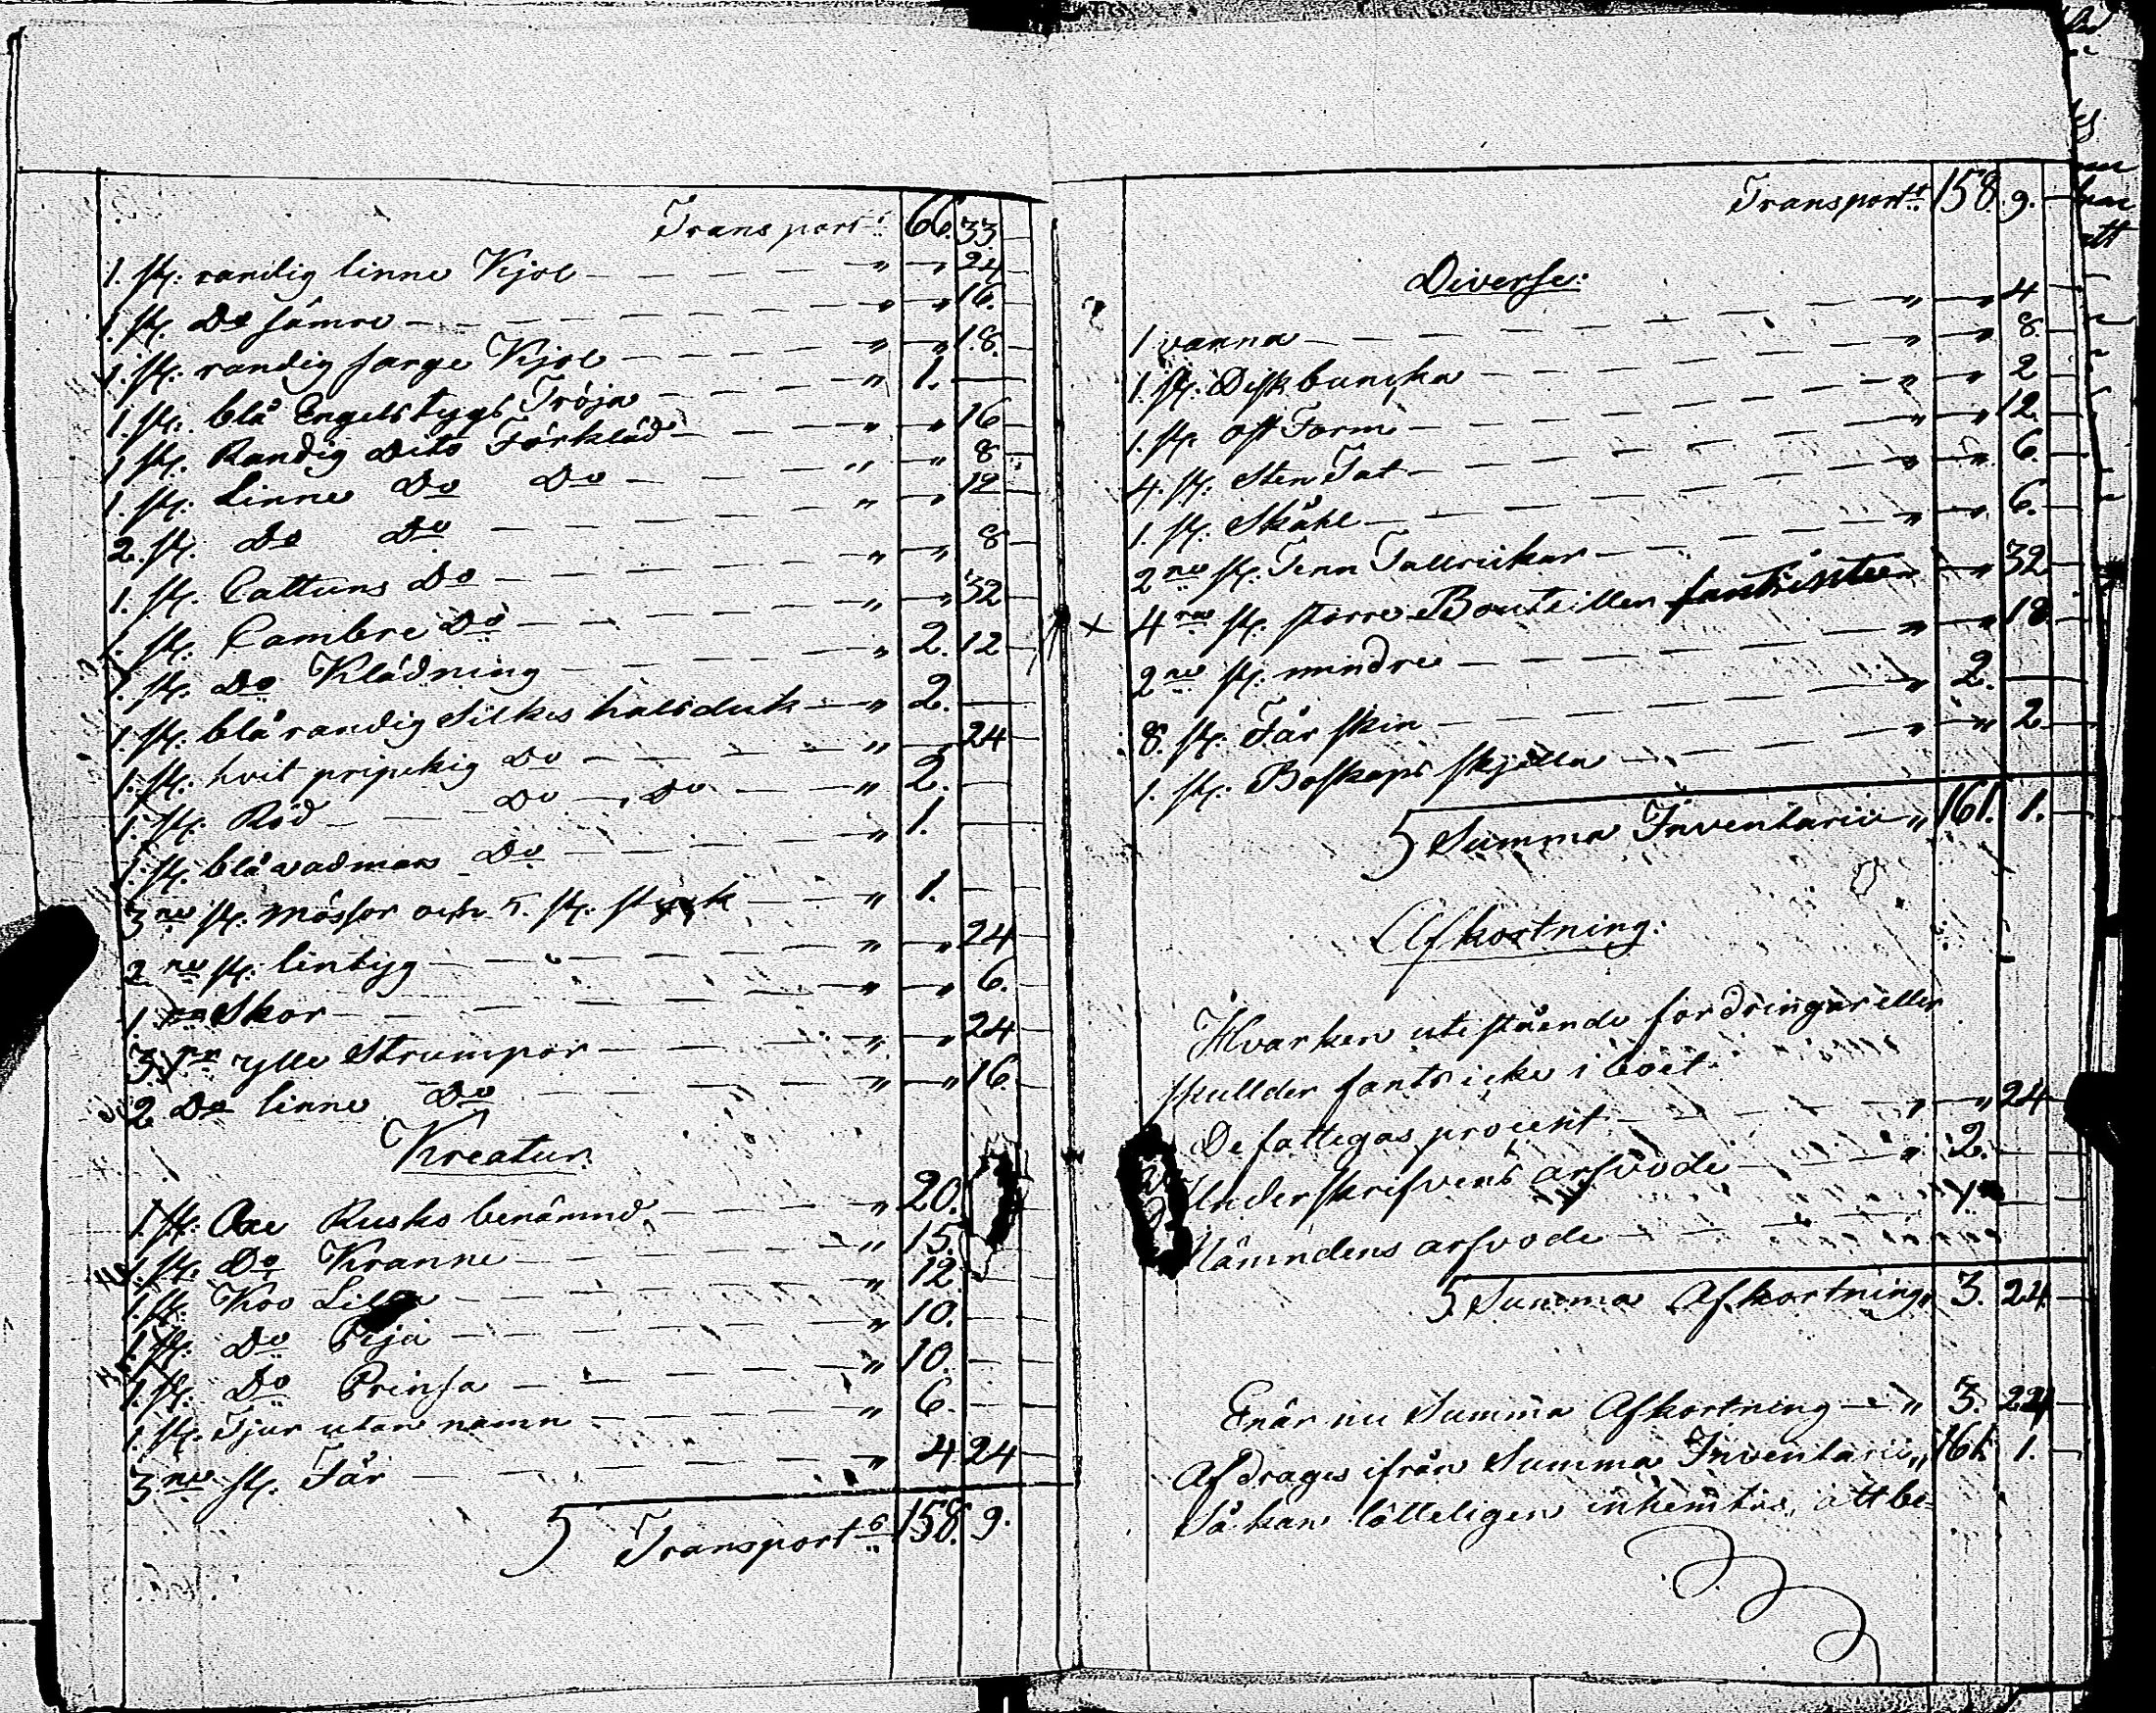 Transport 66. 33.
1. st. randig linne Kjol — „ — 24
1 st. Do sämre — „ — „ 16.
1. st. randig sarge Kjol — „ — „ 18.
1. st. blå Engelstygs Tröja — „ 1. —
1 st. Randig Dito Förkläd — „ — „ 16
1. st. Linne Do Do — „ — „ 8
2. st. Do Do — „ — „ 12
1. st. Cattuns Do — „ — „ 8
1. st. Cambre Do — „ — „ 32
1. st. Do Klädning — „ 2. 12
1. st. blå randig Silkes halsduk — „ 2. —
1. st. hvit prickig Do — „ — „ 24
1. st. Röd — Do — Do — „ 2. —
1. st. blå vadmars Do — „ 1. —
3ne st. mössor och 5. st. — „ 1. —
2ne st. lintyg — „ — „ 24
1 Skor — „ — „ 6.
3 ylle Strumpor — „ — „ 24
2 Do linne Do — „ — „ 16.
Kreatur.
1. st. Oxe Rusko benämnd — „ 20.
1. st. Do Kranne — „ 15.
1. st. Koo — „ 12
1. st. Do — „ 10.
1. st. Do Prinsa — „ 10. —
1. st. Tjur utan namn — „ 6. —
3ne st. Får — „ 4 24
Transport 158. 9.
Transport 158. 9.
Diverse:
1 vanna — „ — „ 4
1. st. Diskbuncka — „ — „ 8.
1. st. ost Form — „ — „ 2
4. st. Sten Fat — „ — „ 12.
1. st. Skåhl — „ — „ 6.
2ne st. Tenn Tallrickar — „ — „ 6.
x 4ra st. större Bouteiller — „ 32
2ne st. mindre — „ — „ 18
8. st. Får skin — „ 2. —
1. st. Boskaps skjälla — „ — „ 2
Summa Inventarii „ 161. 1.
Afkortning:
Hvarken utestående fordringar eller
skullder fants icke i boet.
De fattigas procent — „ — „ 24
Underskrifvens arfvode — „ 2. —
Nämndens arfvode — 1. —
Summa Afkortning „ 3. 24
Enär nu Summa Afkortning — „ 3. 24
Afdrages ifrån Summa Inventarii „ 161. 1.
Så kan lätteligen inhemtas, att be-